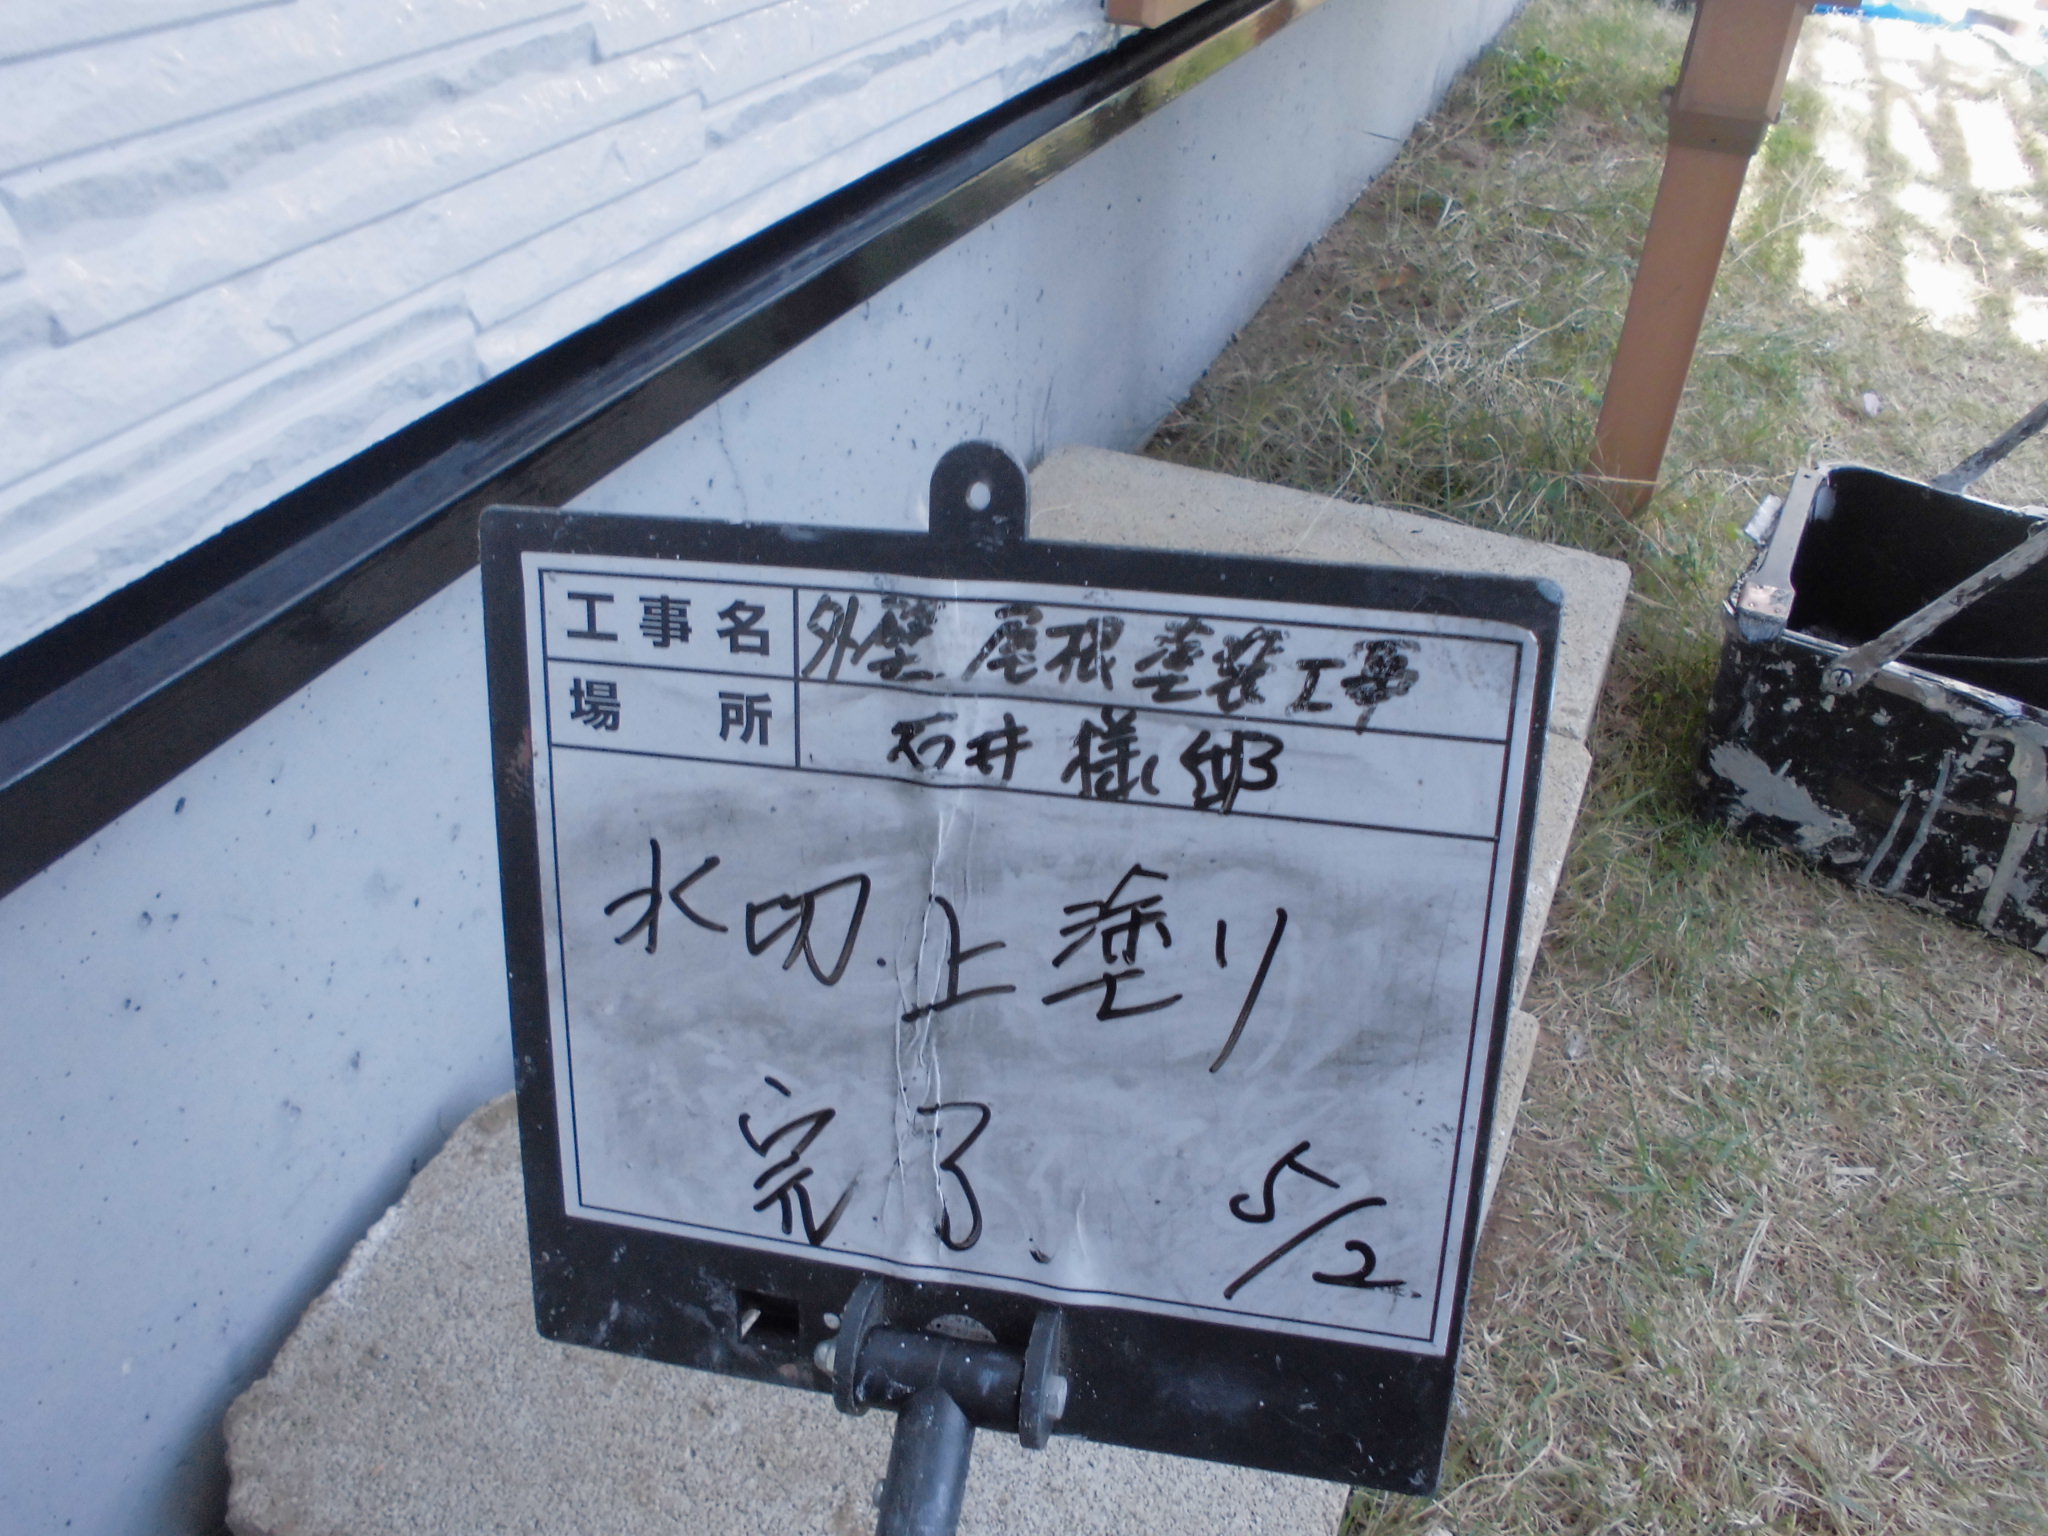 工事名 外壁 屋根塗装工事
場所 石井様邸
水切.上塗り
完了.
5/2.